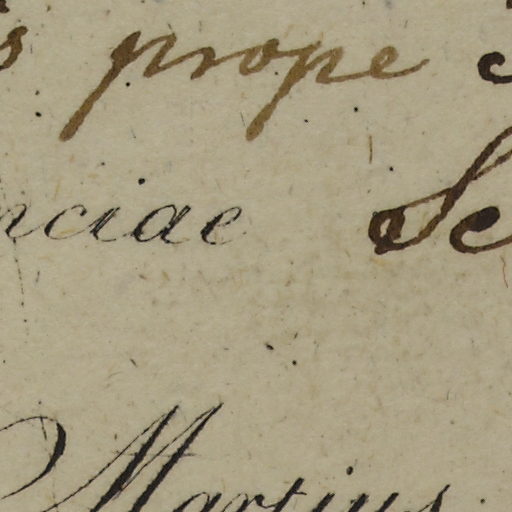 s prope
nciae Se
Martius